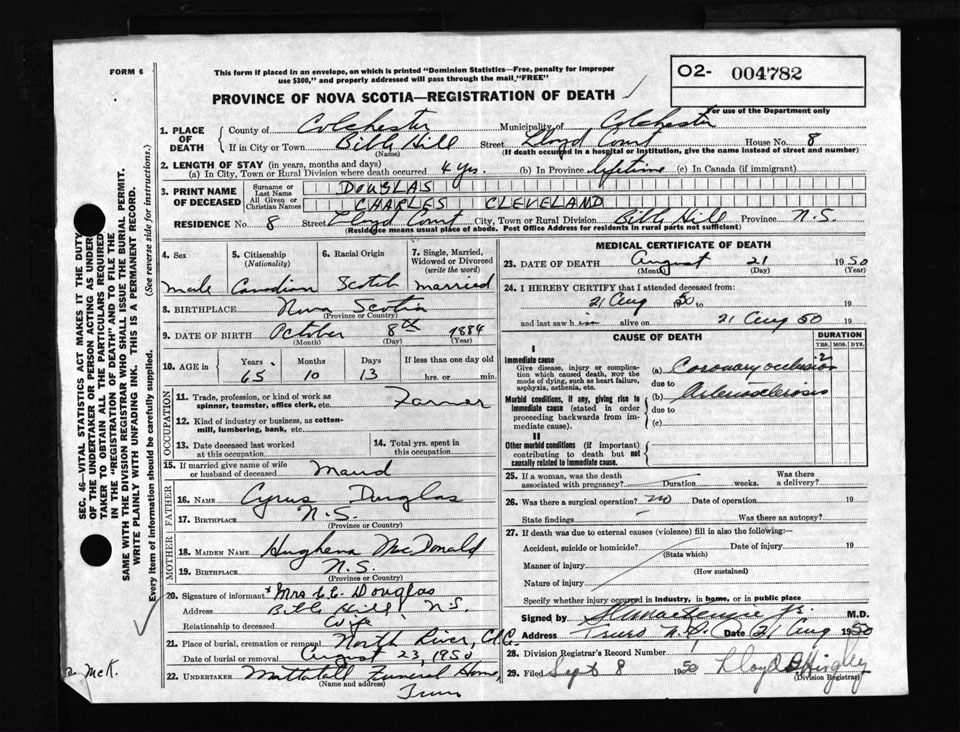 FORM 6
This form if placed in an envelope, on which is printed "Dominion Statistics—Free, penalty for improper
use $300," and properly addressed will pass through the mail, "FREE"
PROVINCE OF NOVA SCOTIA—REGISTRATION OF DEATH
O2- 004782
For use of the Department only
1. PLACE OF DEATH
County of Colchester Municipality of Colchester
If in City or Town Bible Hill Street Lloyd Court House No. 8
(Name) (If death occurred in a hospital or institution, give the name instead of street and number)
2. LENGTH OF STAY (in years, months and days)
(a) In City, Town or Rural Division where death occurred 4 yrs. (b) In Province lifetime (c) In Canada (if immigrant)
3. PRINT NAME OF DECEASED
Surname or Last Name DOUGLAS
All Given or Christian Names CHARLES CLEVELAND
RESIDENCE No. 8 Street Lloyd Court City, Town or Rural Division Bible Hill Province N.S.
(Residence means usual place of abode. Post Office Address for residents in rural parts not sufficient)
4. Sex
male
5. Citizenship
(Nationality)
Canadian
6. Racial Origin
Scotch
7. Single, Married,
Widowed or Divorced
(write the word)
married
8. BIRTHPLACE Nova Scotia
(Province or Country)
9. DATE OF BIRTH October 8th 1884
(Month) (Day) (Year)
10. AGE in
Years Months Days If less than one day old
65 10 13 hrs. or min.
OCCUPATION
11. Trade, profession, or kind of work as
spinner, teamster, office clerk, etc. Farmer
12. Kind of industry or business, as cotton-
mill, lumbering, bank, etc.
13. Date deceased last worked
at this occupation
14. Total yrs. spent in
this occupation
15. If married give name of wife
or husband of deceased Maud
FATHER
16. NAME Cyrus Douglas
17. BIRTHPLACE N.S.
(Province or Country)
MOTHER
18. MAIDEN NAME Hughena MacDonald
19. BIRTHPLACE N.S.
(Province or Country)
20. Signature of informant Mrs C.C. Douglas
Address Bible Hill N.S.
Relationship to deceased Wife
21. Place of burial, cremation or removal North River, Col. Co.
Date of burial or removal August 23, 1950
22. UNDERTAKER Mattatall Funeral Home,
(Name and address)
Truro
MEDICAL CERTIFICATE OF DEATH
23. DATE OF DEATH August 21 1950
(Month) (Day) (Year)
24. I HEREBY CERTIFY that I attended deceased from:
21 Aug 50 to 19
and last saw h im alive on 21 Aug 50 19
CAUSE OF DEATH
DURATION
YRS. MOS. DYS.
I
Immediate cause
Give disease, injury or complica-
tion which caused death, NOT the
mode of dying, such as heart failure,
asphyxia, asthenia, etc.
(a) Coronary occlusion 2
due to
Morbid conditions, if any, giving rise to
immediate cause (stated in order
proceeding backwards from im-
mediate cause).
(b) Arteriosclerosis
due to
(c)
II
Other morbid conditions (if important)
contributing to death but not
causally related to immediate cause.
25. If a woman, was the death
associated with pregnancy? Duration weeks. Was there
a delivery?
26. Was there a surgical operation? no Date of operation 19
State findings Was there an autopsy?
27. If death was due to external causes (violence) fill in also the following:
Accident, suicide or homicide? Date of injury 19
(State which)
Manner of injury
(How sustained)
Nature of injury
Specify whether injury occurred in industry, in home, or in public place
Signed by M.D.
Address Truro N.S. Date 21 Aug 1950
28. Division Registrar's Record Number
29. Filed Sept 8 1950 Lloyd
(Division Registrar)
SEC. 46—VITAL STATISTICS ACT MAKES IT THE DUTY
OF THE UNDERTAKER OR PERSON ACTING AS UNDER-
TAKER TO OBTAIN ALL THE PARTICULARS REQUIRED
IN THE "REGISTRATION OF DEATH" AND TO FILE THE
SAME WITH THE DIVISION REGISTRAR WHO SHALL ISSUE THE BURIAL PERMIT.
WRITE PLAINLY WITH UNFADING INK. THIS IS A PERMANENT RECORD.
Every item of information should be carefully supplied. (See reverse side for instructions.)
McK.